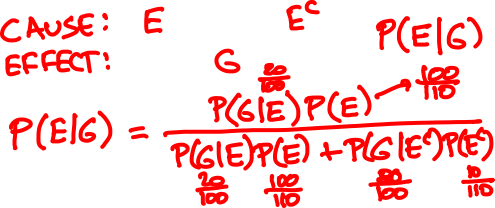 CAUSE: E E^C
P(E|G)
EFFECT: G
P(E|G) = P(G|E)P(E) / P(G|E)P(E) + P(G|E^C)P(E^C)
20/100 100/110
20/100 100/110 80/100 10/110